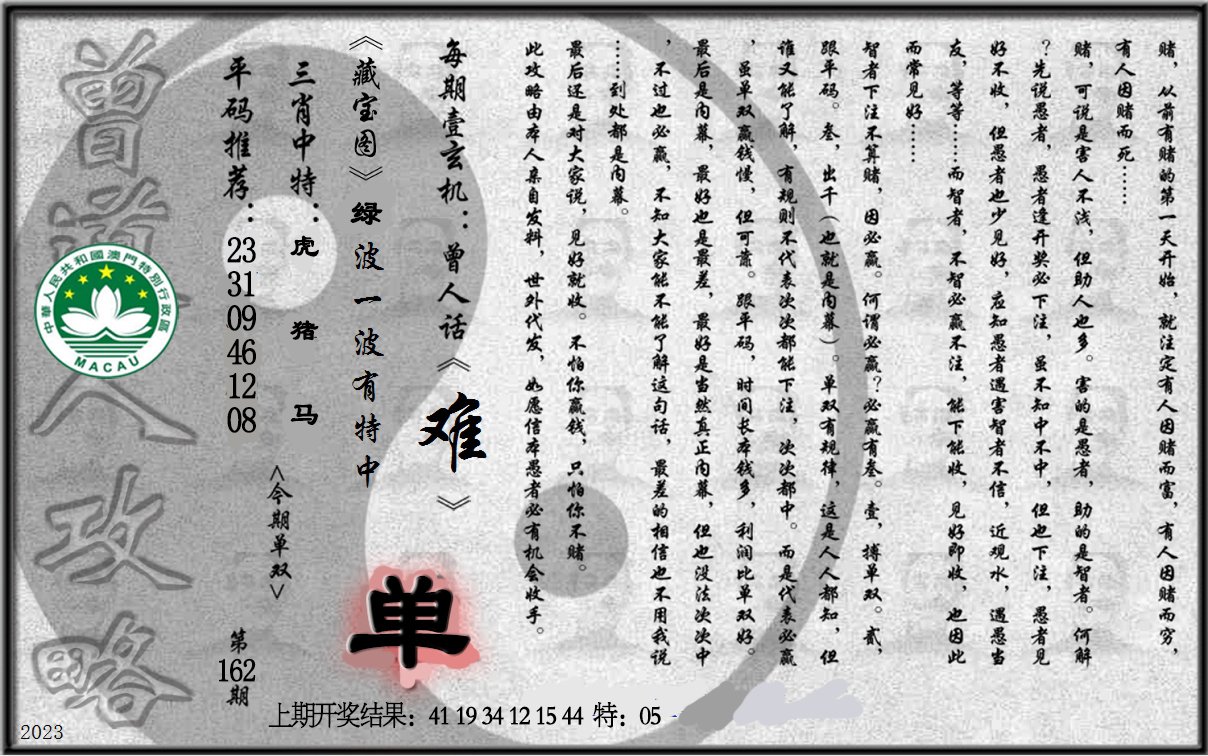 赌，从前有赌的第一天开始，就注定有人因赌而富，有人因赌而穷，
有人因赌而死……
赌，可说是害人不浅，但助人也多。害的是愚者，助的是智者。何解
？先说愚者，愚者逢开奖必下注，虽不知中不中，但也下注，愚者见
好不收，但愚者也少见好，应知愚者遇害智者不信，近观水，遇愚当
友，等等……而智者，不智必赢不注，能下能收，见好即收，也因此
而常见好……
智者下注不算赌，因必赢。何谓必赢？必赢有叁。壹，搏单双。贰，
跟平码。叁，出千（也就是内幕）。单双有规律，这是人人都知，但
谁又能了解，有规则不代表次次都能下注，次次都中。而是代表必赢
，虽单双赢钱慢，但可靠。跟平码，时间长本钱多，利润比单双好。
最后是内幕，最好也是最差，最好是当然真正内幕，但也没法次次中
，不过也必赢，不知大家能不能了解这句话，最差的相信也不用我说
……到处都是内幕。
最后还是对大家说，见好就收。不怕你赢钱，只怕你不赌。
此攻略由本人亲自发料，世外代发，如愿信本愚者必有机会收手。
每期壹玄机：曾人话《难》
《藏宝图》绿波一波有特中
三肖中特：虎 猪 马
平码推荐：23 31 09 46 12 08
<今期单双>
单
第162期
曾道人攻略
中華人民共和國澳門特別行政區
MACAU
上期开奖结果：41 19 34 12 15 44 特：05
2023